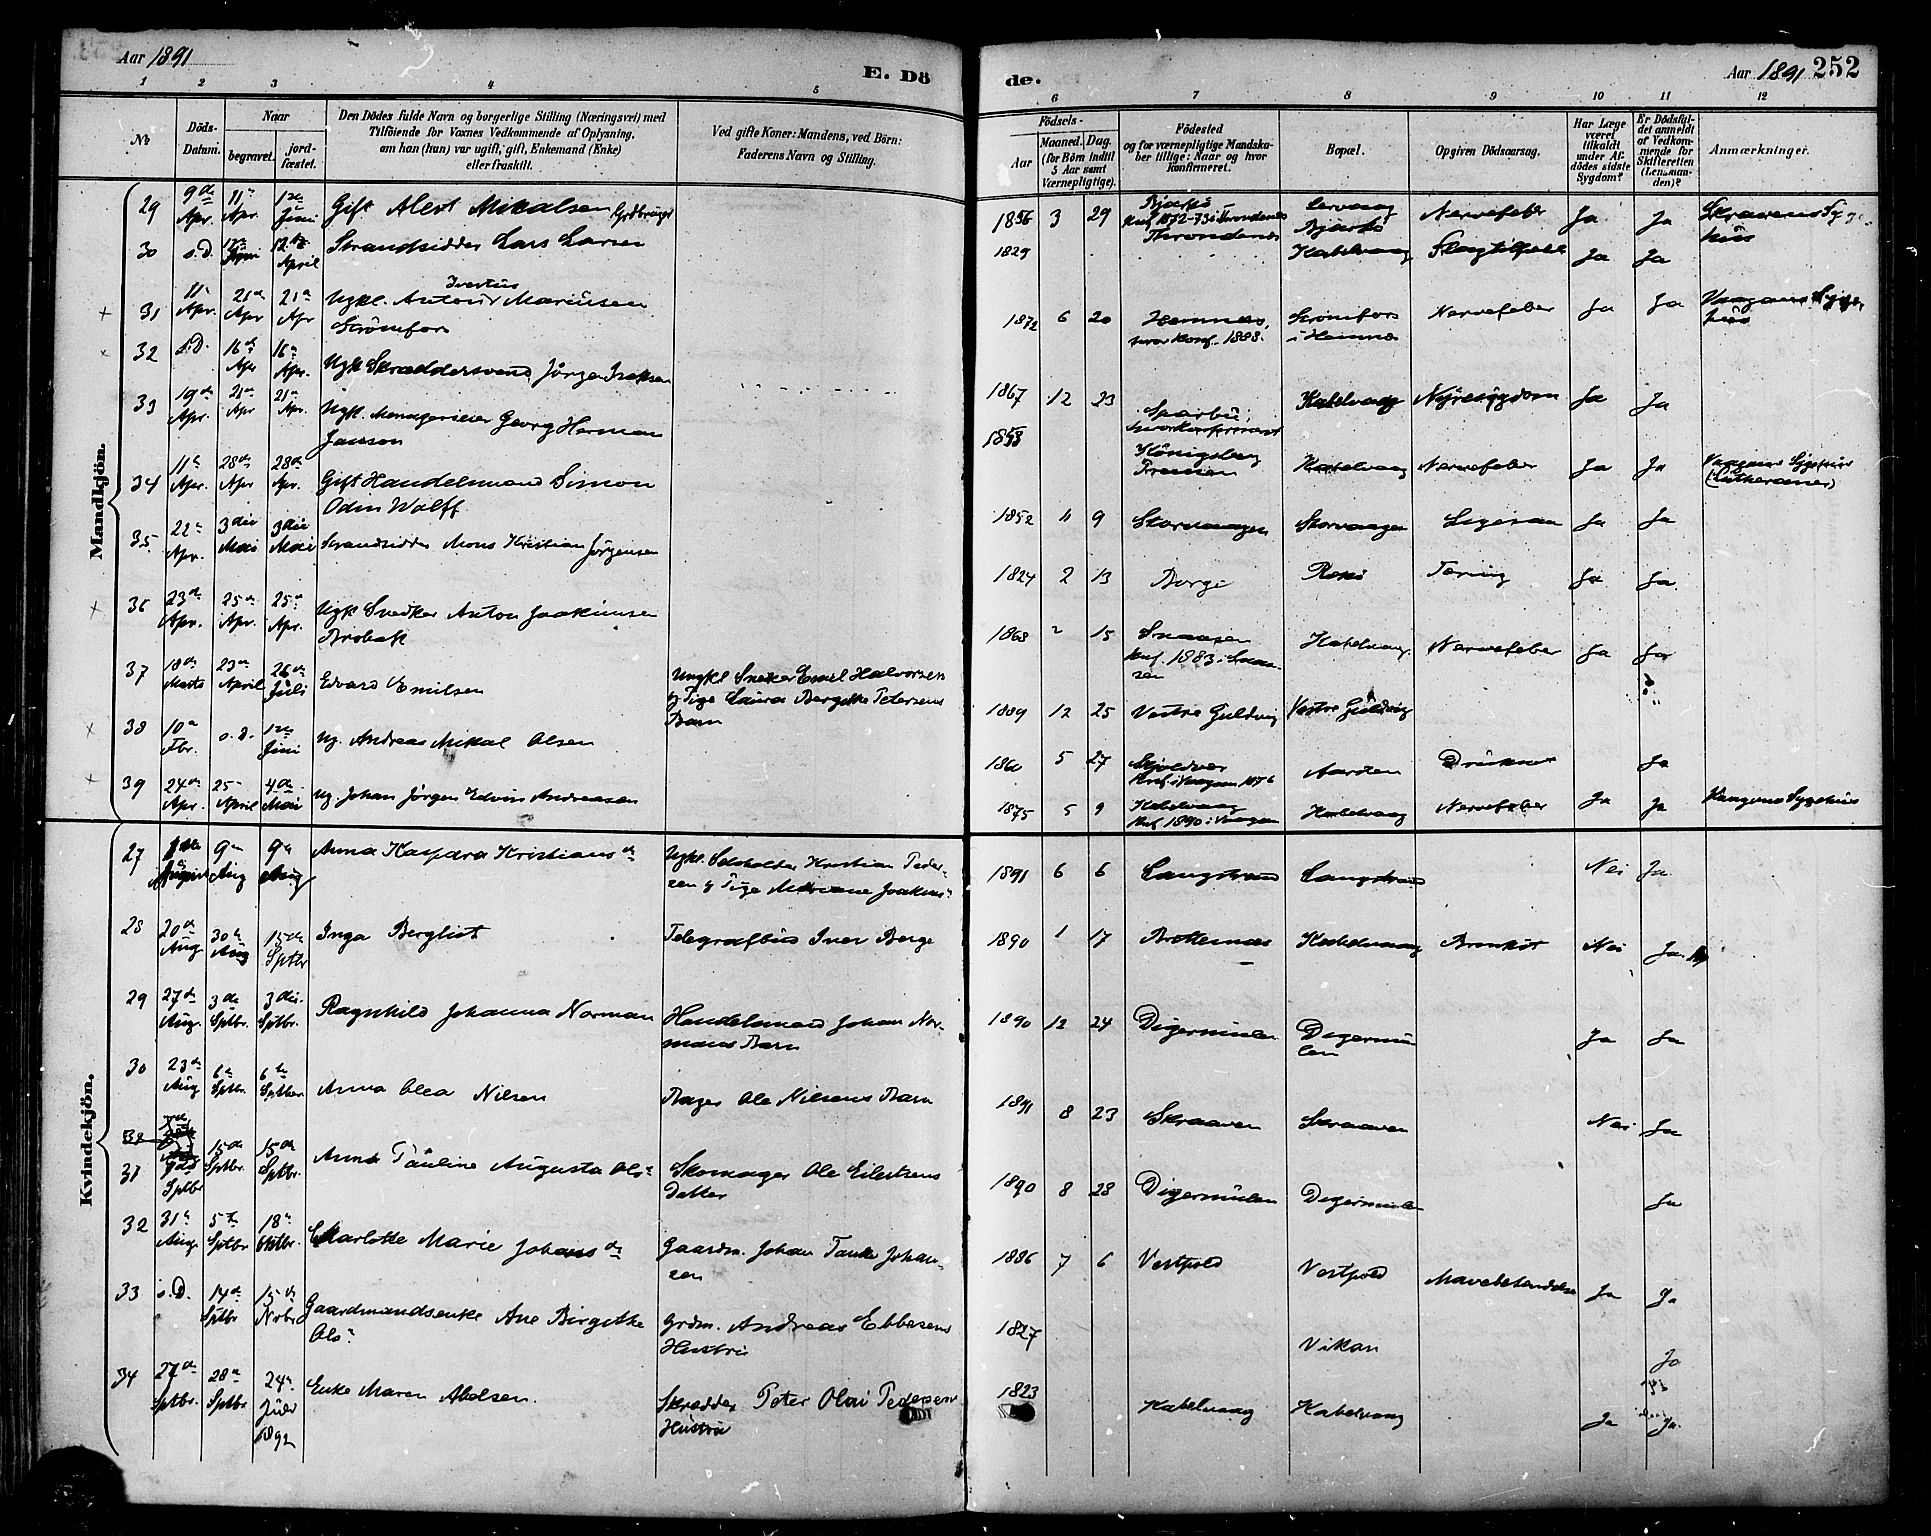 Aar 1891
E. Dö
de.
Aar 1891 252
1 2 3 4 5
6 7 8 9 10 11 12
No
Döds-
Datum.
Naar
begravet.
jord-
fæstet.
Den Dödes fulde Navn og borgerlige Stilling (Næringsvei) med
Tilföiende for Voxnes Vedkommende af Oplysning,
om han (hun) var ugift, gift, Enkemand (Enke)
eller fraskilt.
Ved gifte Koner: Mandens, ved Börn:
Faderens Navn og Stilling.
Födsels-
Aar
Maaned. Dag.
(for Börn indtil
5 Aar samt
Værnepligtige).
Födested
og for værnepligtige Mandska-
ber tillige: Naar og hvor
konfirmeret.
Bopæl.
Opgiven Dödsaarsag.
Har Læge
været
tilkaldt
under Af-
dödes sidste
Sygdom?
Er Dödsfal-
det anmeldt
af Vedkom-
mende for
Skifteretten
(Lensman-
den)?
Anmærkninger.
Mandkjön.
29 9de Apr. 11te Apr. 1ste Juni Gift Alert Mikalsen Grdbruger
1856 3 29 Bjarkö Konf 1872-73 i Throndenes Bjarkö Nervefeber Ja Ja Skraavens Syge-
hus
30 s.D. 12te April Strandsidder Lars Larsen
1829 Throndenes Kabelvaag Slagtilfælde Ja Ja
31 11te Apr. 21de Apr 21de Apr Ugkl. Antoni Marinsen
Strömfors
1872 6 20 Hemnes, hvor konf. 1888. Strömfors i Hemnes Nervefeber Ja Ja Vaagans Syge-
hus
32 s.D. 16de Apr 16de Apr. Ugk Skræddersvend Jörgen Iseksen
1867 12 23 Kabelvaag Nyresygdom Ja Ja
33 19de Apr. 21de Apr 21de Apr. Ugk. Menagerieier Georg Herman
Janson
1858 Königsberg Preusen Kabelvaag Nervefeber Ja Ja Vaagans Sygehus
(Lutheraner)
34 11te Apr. 28de Apr 28de Apr. Gift Handelsmand Simon
Odin Wolff
1852 11 9 Storvaagen Storvaagen Ja Ja
35 22de Apr. 3die Mai 3die Mai Strandsidder Mons Kristian Jörgensen
1824 2 13 Borge Tæring Ja Ja
36 23de Apr. 25de Apr. 25de Apr. Ugk Snedker Anton Joakimsen
Brobak
1868 2 15 Snaasen Konf. 1883 i Snaa-
sen Kabelvaag Nervefeber Ja Ja
37 18de Marts 23de April 26de Juli Edvard Emilsen
Ungkl Sneker Emil Halvorsen
og Pige Laura Bergitte Petersens
Barn
1889 12 25 Vestre Guldvig Vestre Guldvig
38 10de Fbr. s.D. 1ste Juni Ug. Andreas Mikal Olsen
5 27 Druknet Ja
39 24de Apr. 25de April 4de Mai Ug. Johan Jörgen Edvin Andreasen
1875 5 9 Kabelvaag Konf. 1890 i Vaagan Kabelvaag Nervefeber Ja Ja Vaagans Sygehus
Kvindekjön.
27 August 9de Aug 9de Aug Anna Kaspara Kristiansdr
Ugkl. Kristian Peder-
sen og Pige Joakims
1891 6 6 Langstrand Langstrand Nei Ja
28 20de Aug 30te Aug 15de Sptbr Inga Bergliot
Telegrafbud Iver Berge
1890 1 17 Brettesnæs Kabelvaag Bronkit Nei Ja
29 27de Aug. 3die Sptbr. 3die Sptbr. Ragnhild Johanna Norman
Handelsmand Johan Nor-
mans Barn
1890 12 24 Digermulen Digermu-
len Ja Ja
30 23de Aug 6te Sptbr. 6te Sptbr. Anna Olea Nilsen
Bager Ole Nilsens Barn
1891 8 23 Skraaven Skraaven Nei Ja
31 9de Sptbr 15de Sptbr. 15de Sptbr. Anna Pauline Augusta Ols
Skomager Ole Eilertsens
Datter
1890 8 28 Digermulen Digermulen Ja
32 31te Aug. 5te Sptbr 18de Oktbr. Charlotte Marie Johansdr
Gaardm. Johan Johan-
sen
1886 7 6 Vestpold Vestpold Mavebetændelse Ja Ja
33 s.D. 14de Sptbr 15de Novbr Gaardmandsenke Ane Birgitte
Ols
Grdm. Andreas Ebbesens
Hustru
1827 Vikan Ja
34 27de Sptbr. 28de Sptbr 24de Juli 1892 Enke Maren Abelsen.
Skrædder Peter Olai Pedersens
Hustru
1823 Kabelvaag Kabelvaag Ja Ja.